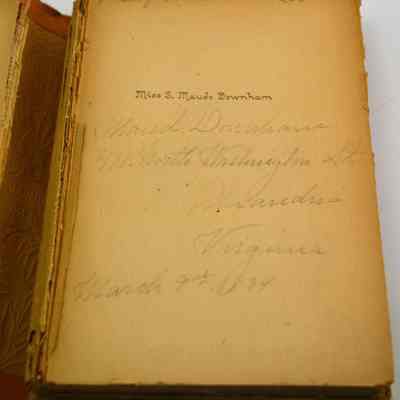 Miss S. Maude Downham
Maud Downham
North Washington St.
Alexandria
Virginia
March 9th